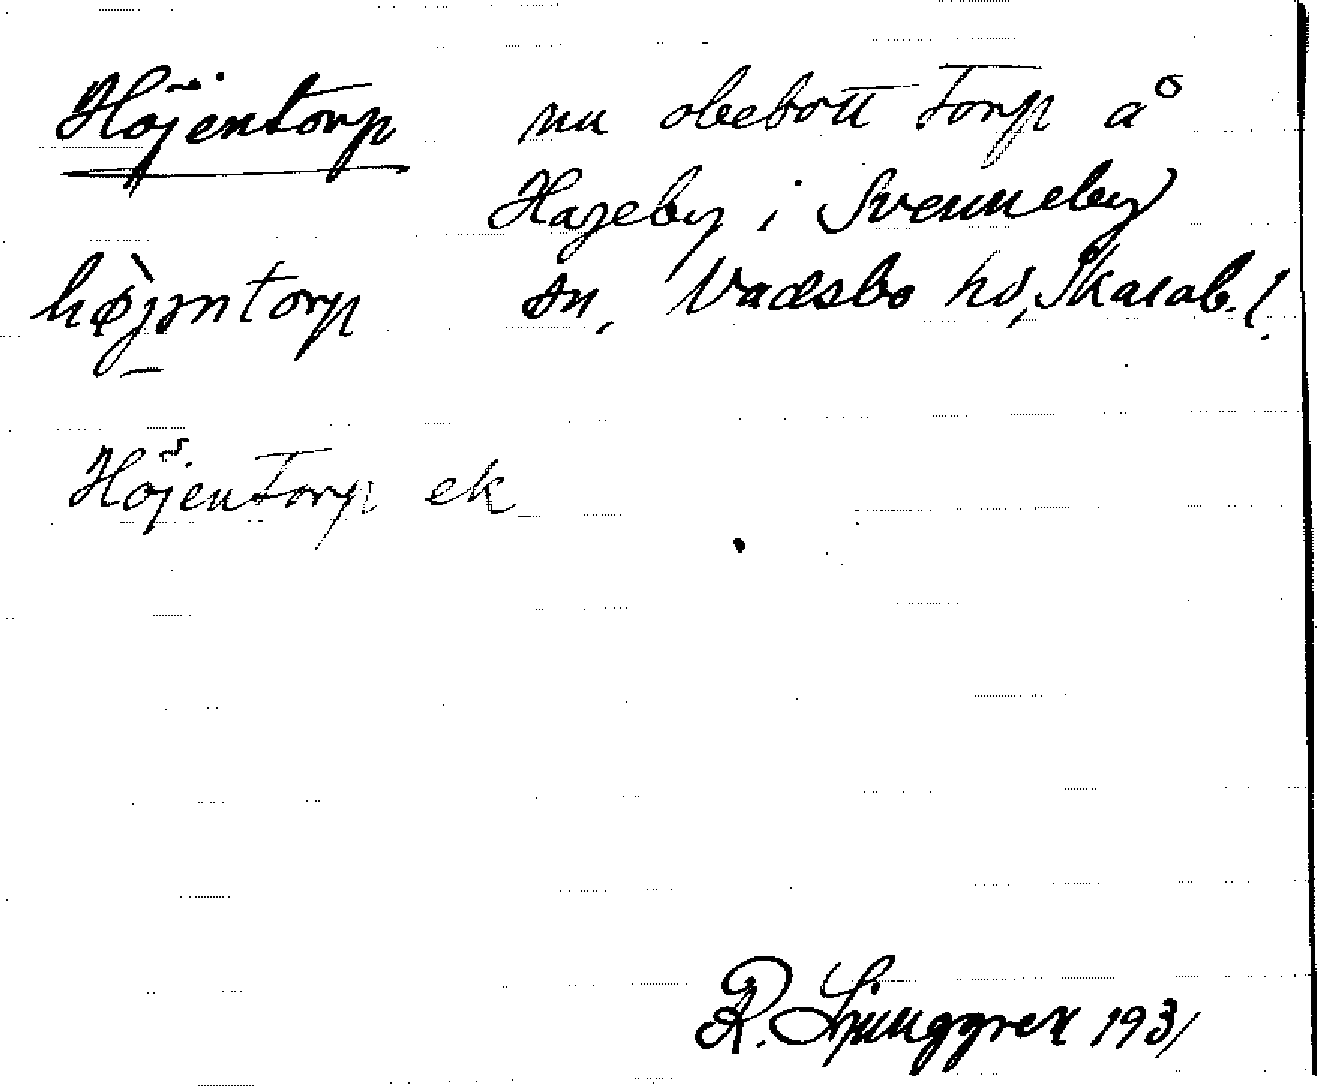 Höjentorp nu obebott torp å
Hageby i Svenneby
hø̀jəntorp sn, Vadsbo hd, Skarab. l.
Höjentorp ek
R. Ljunggren 1931